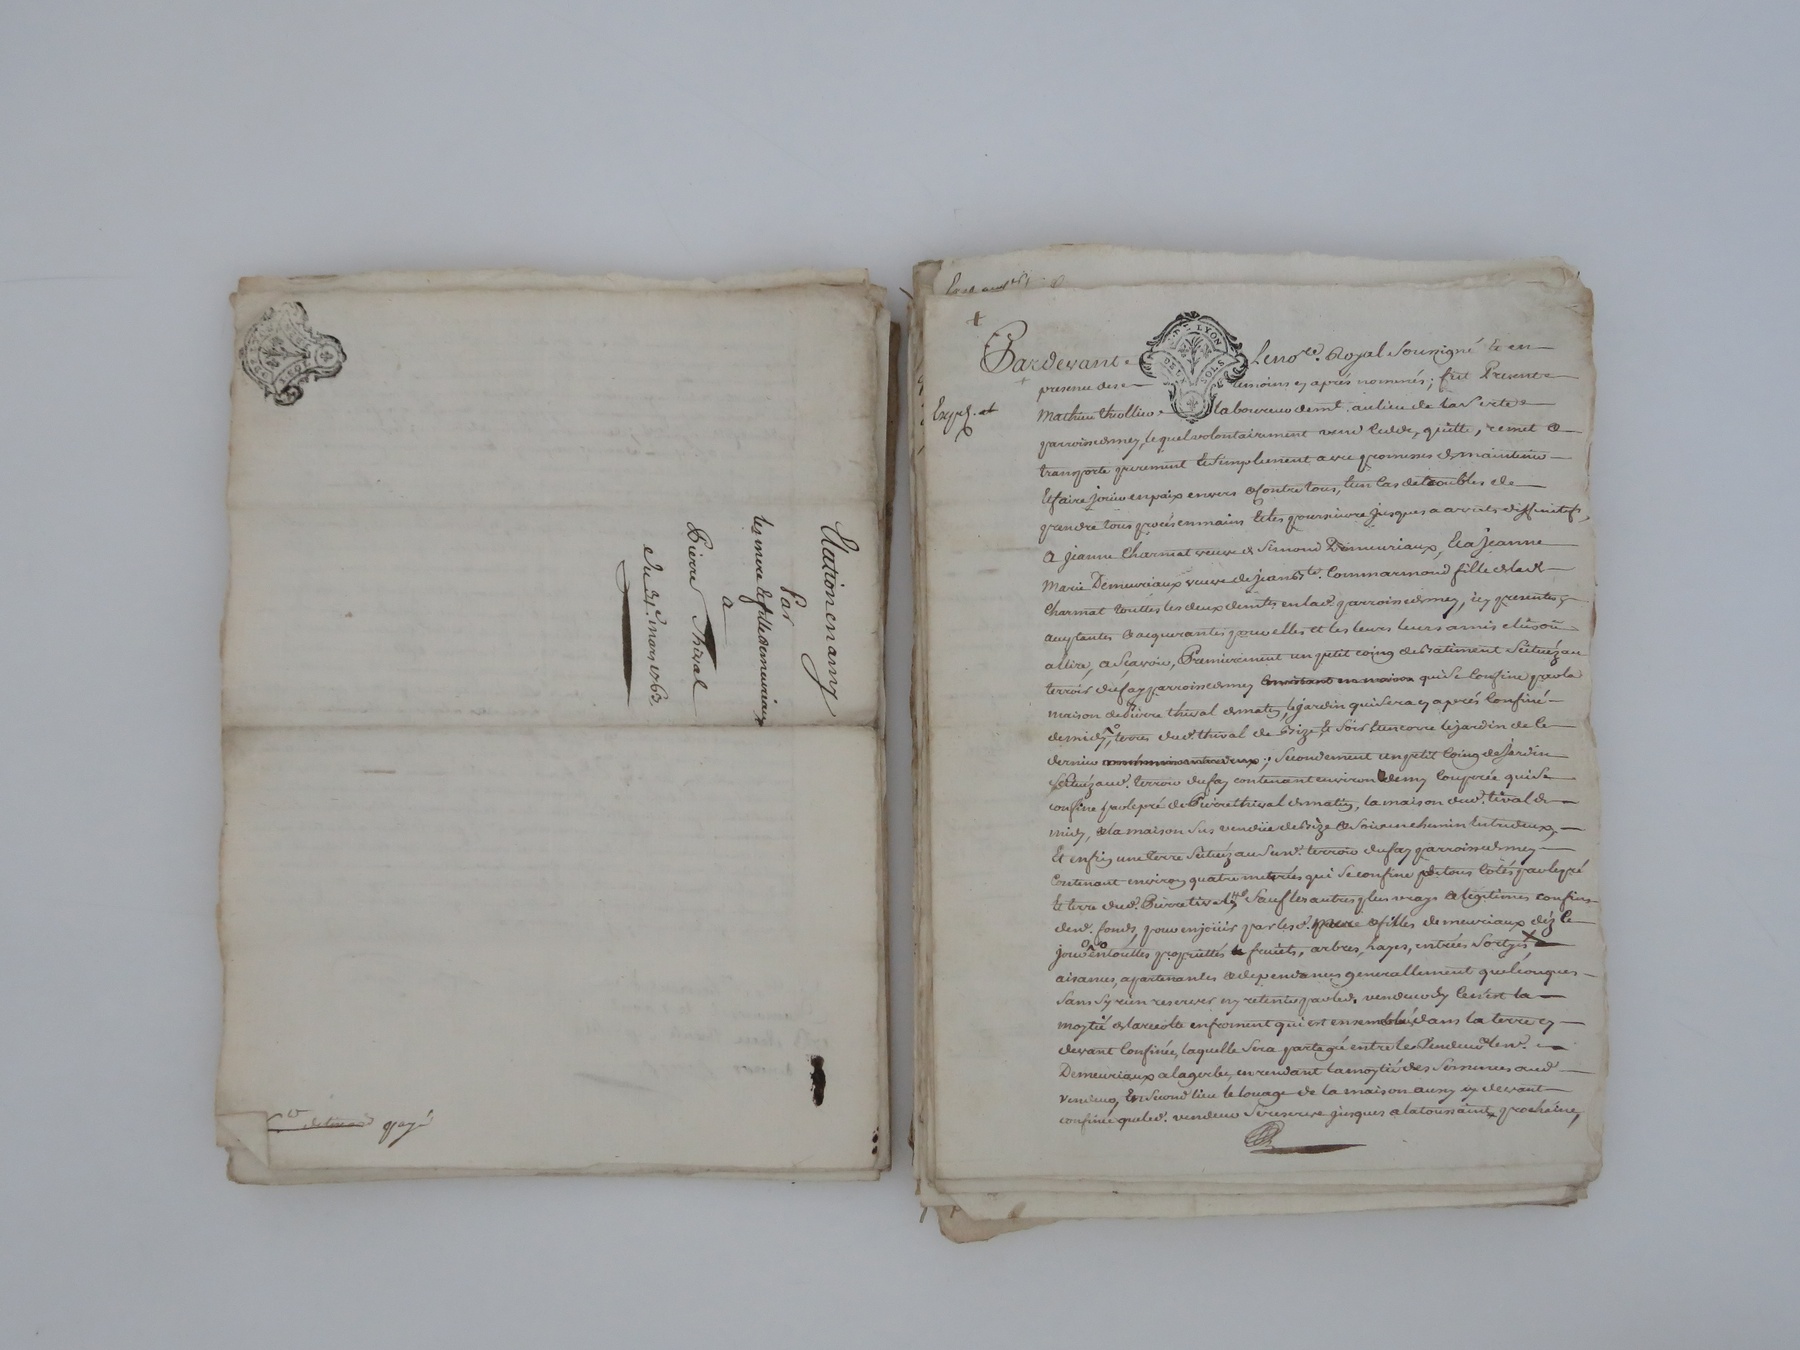 Election en amy
Par
les mere et fille demeuriaux
a
Pierre Thival
du 31e. mars 1763.
payé
Exped. et
Pardevant Le nore. Royal Soussigné et en
presence des temoins cy aprés nommés; fut Present
Mathieu thollieu laboureur demt. au lieu de la
parroisse de mey, lequel volontairement vend cedde, quitte, remet et
transporte purement et simplement avec promesses de maintenir
et faire jouir en paix envers et contre tous, en cas de troubles de
prendre tous procés en mains et les poursuivre jusques a arrets diffinitifs,
a jeanne Charmat veuve de Simond Demeuriaux, et a Jeanne
Marie Demeuriaux veuve de jean Bte. Commarmond fille de lad.
Charmat touttes les deux demtes. en lad. parroisse de mey, icy presentes
acceptantes et acquerantes pour elles et les leurs leurs amis elus ou
a elire, a Scavoir, Premierement un petit coing de Batiment Scituéz au
terroir du fay parroisse de mey qui Se Confine par la
maison de Pierre thival de matin, le jardin qui sera cy aprés Confiné
de midy, terres dud. thival de Bize et Soir et encorre le jardin de ce
dernier ; Secondement un petit Coing de Jardin
Scituéz aud. terroir du fay contenant environ demy Couppée qui Se
confine par le pré de Pierre thival de matin, la maison dud. tival de
midy, et la maison Sus vendüe de Bize et Soir un chemin entredeux,
Et enfin une terre Scituéz au Susd. terroir du fay parroisse de mey
Contenant environ quatre metérés qui Se confine de tous Cotés par le pré
et terre dud. Pierre tival Sauf les autres plus vrays et legitimes confins
desd. fonds, pour en joüir par lesd. mere et filles demeuriaux déz ce
jourd en touttes proprietés fruits, arbres, hayes, entrées Sortyes
aisances, appartenances et dependances generallement quelconques
Sans Sy rien reserver ny retenir par led. vendeur Sy ce n'est la
moytié de la recolte en froment qui est ensemblé dans la terre cy
devant Confinée, laquelle Sera partagé entre le Vendeur et les d.
Demeuriaux a la gerbe, en rendant la moytié des Semences aud.
vendeur, En Second lieu le louage de la maison aussy cy devant
confinée que led. vendeur Se reserve jusques a la toussaint prochaine,